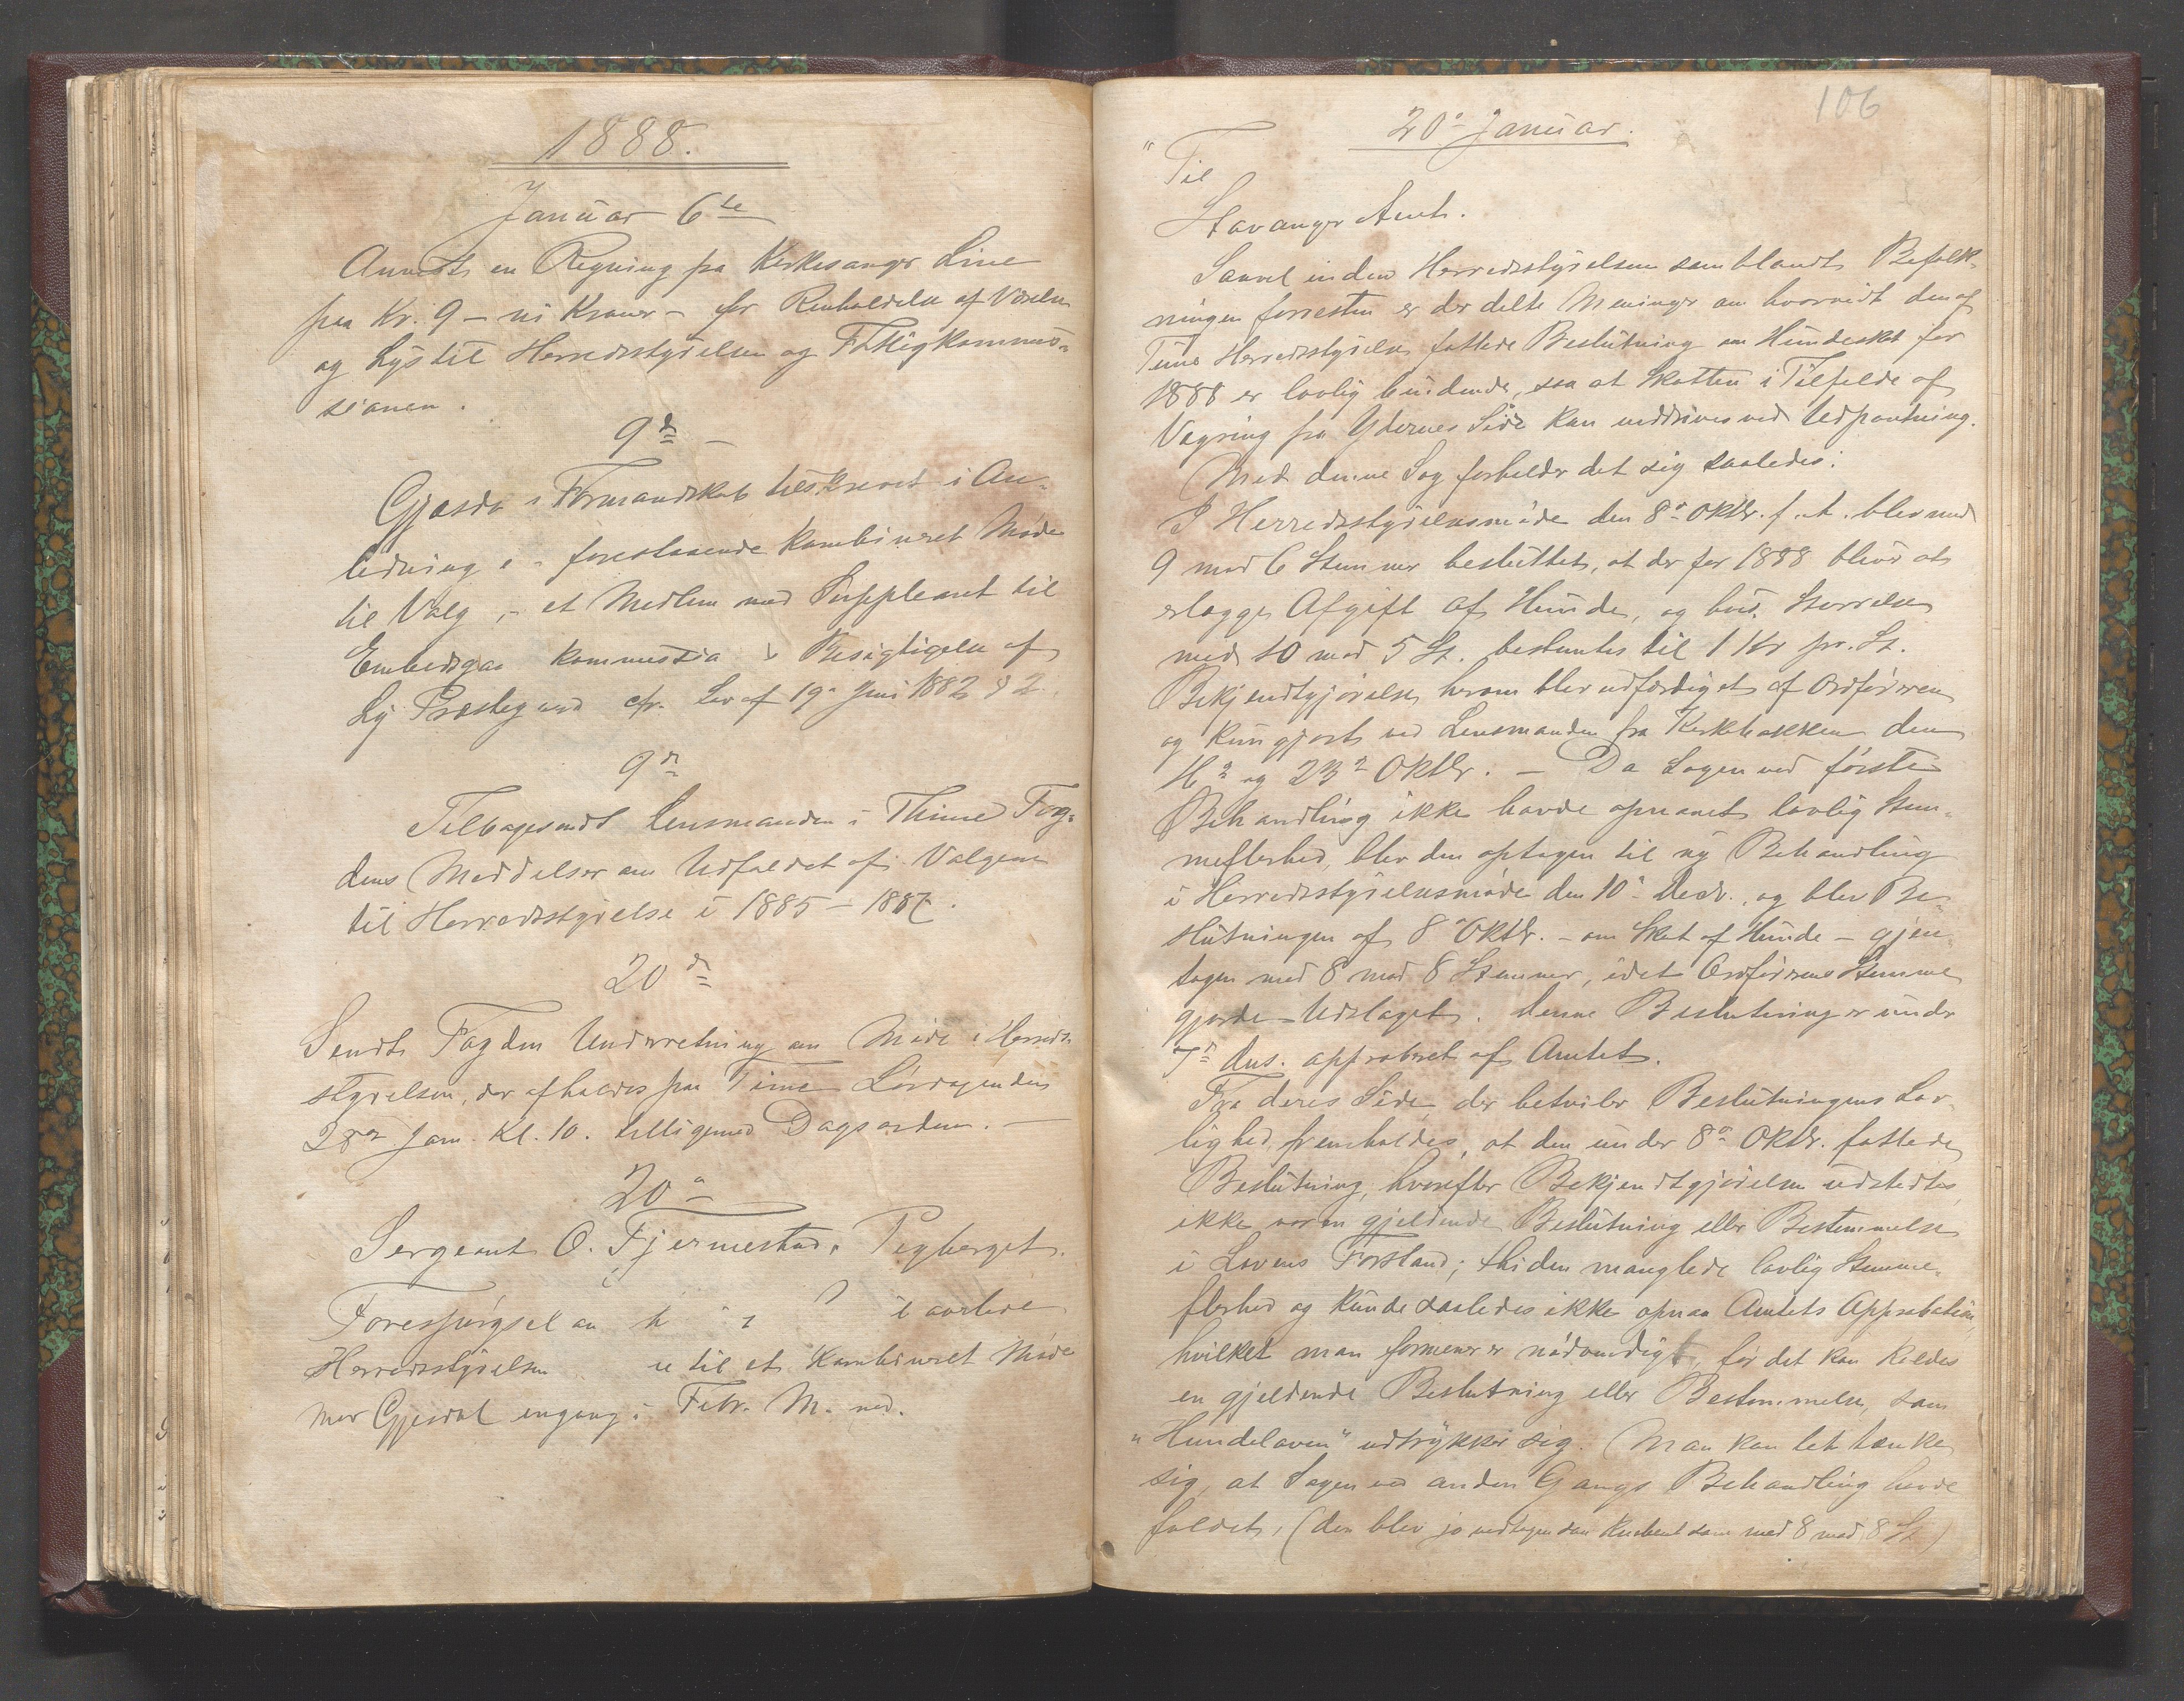 1888.
Januar 6te
Anvist en Regning fra Kirkesanger Line
paa Kr. 9 – ni Kroner – for Renholdelse af Værelse
og Lys til Herredsstyrelsen og Fattigkommis-
sionen.
9de –
Gjesdal Formandskab tilskrevet i An-
ledning forestaaende kombineret Møde
til Valg et Medlem med Suppleant til
Embedsgaa kommission Besigtigelse af
Ly Præstegaard cfr. Lov af 19de Juni 1882 § 2.
9de
Tilbagesendt Lensmanden i Thime Fog-
dens Meddelser om Udfaldet af Valgene
til Herredsstyrelse i 1885 – 1887.
20de
Sendt Fogden Underretning om Møde i Herreds-
styrelsen, der afholdes paa Time Lørdagen den
28de Jan. Kl. 10. tilligemed Dagsorden. –
20de
Sergeant O. Fjermestad, Tegberget.
Forespørgsel om
Herredsstyrelsen til et Kombineret Møde
med Gjesdal engang i Febr. M.
106
20de Januar.
" Til
Stavanger Amt.
Saavel inden Herredsstyrelsen som blandt Befolk-
ningen forresten er der delte Meninger om hvorvidt den af
Time Herredsstyrelse fattede Beslutning om Hundeskat for
1888 er lovlig bindende, saa at Skatten i Tilfælde af
Vægring fra Ydernes Side kan inddrives ved Udpantning.
Med denne Sag forholder det sig saaledes:
I Herredsstyrelsesmøde den 8de Oktbr. f. A. blev med
9 mod 6 Stemmer besluttet, at der for 1888 blev at
erlægge Afgift af Hunde, og dens Størrelse
med 10 mod 5 St. bestemtes til 1 Kr pr. St.
Bekjendtgjørelse herom blev udfærdiget af Ordføreren
og kungjort ved Lensmanden fra Kirkebakken den
16de og 23de Oktbr. – Da Sagen ved første
Behandling ikke havde opnaaet lovlig Stem-
meflerhed, blev den optagen til ny Behandling
i Herredsstyrelsesmøde den 10de Decbr., og blev Be-
slutningen af 8de Oktbr. – om Skat af Hunde – gjen-
tagen med 8 mod 8 Stemmer, idet Ordførerens Stemme
gjorde Udslaget. Denne Beslutning er under
7de ds. approberet af Amtet.
Fra deres Side der betviler Beslutningens Lov-
lighed fremholdes, at den under 8de Oktbr. fattede
Beslutning, hvorefter Bekjendtgjørelsen udstedtes,
ikke var en gjeldende Beslutning eller Bestemmelse
i Lovens Forstand; thi den manglede lovlig Stemme-
flerhed og kunde saaledes ikke opnaa Amtets Approbation,
hvilket man formener er nødvendigt, før det kan kaldes
en gjeldende Beslutning eller Bestemmelse, som
"Hundeloven" udtrykker sig. Man kan let tænke
sig, at Sagen ved anden Gangs Behandling havde
faldet, (den blev jo vedtagen saa knebent som med 8 mod 8 St.)